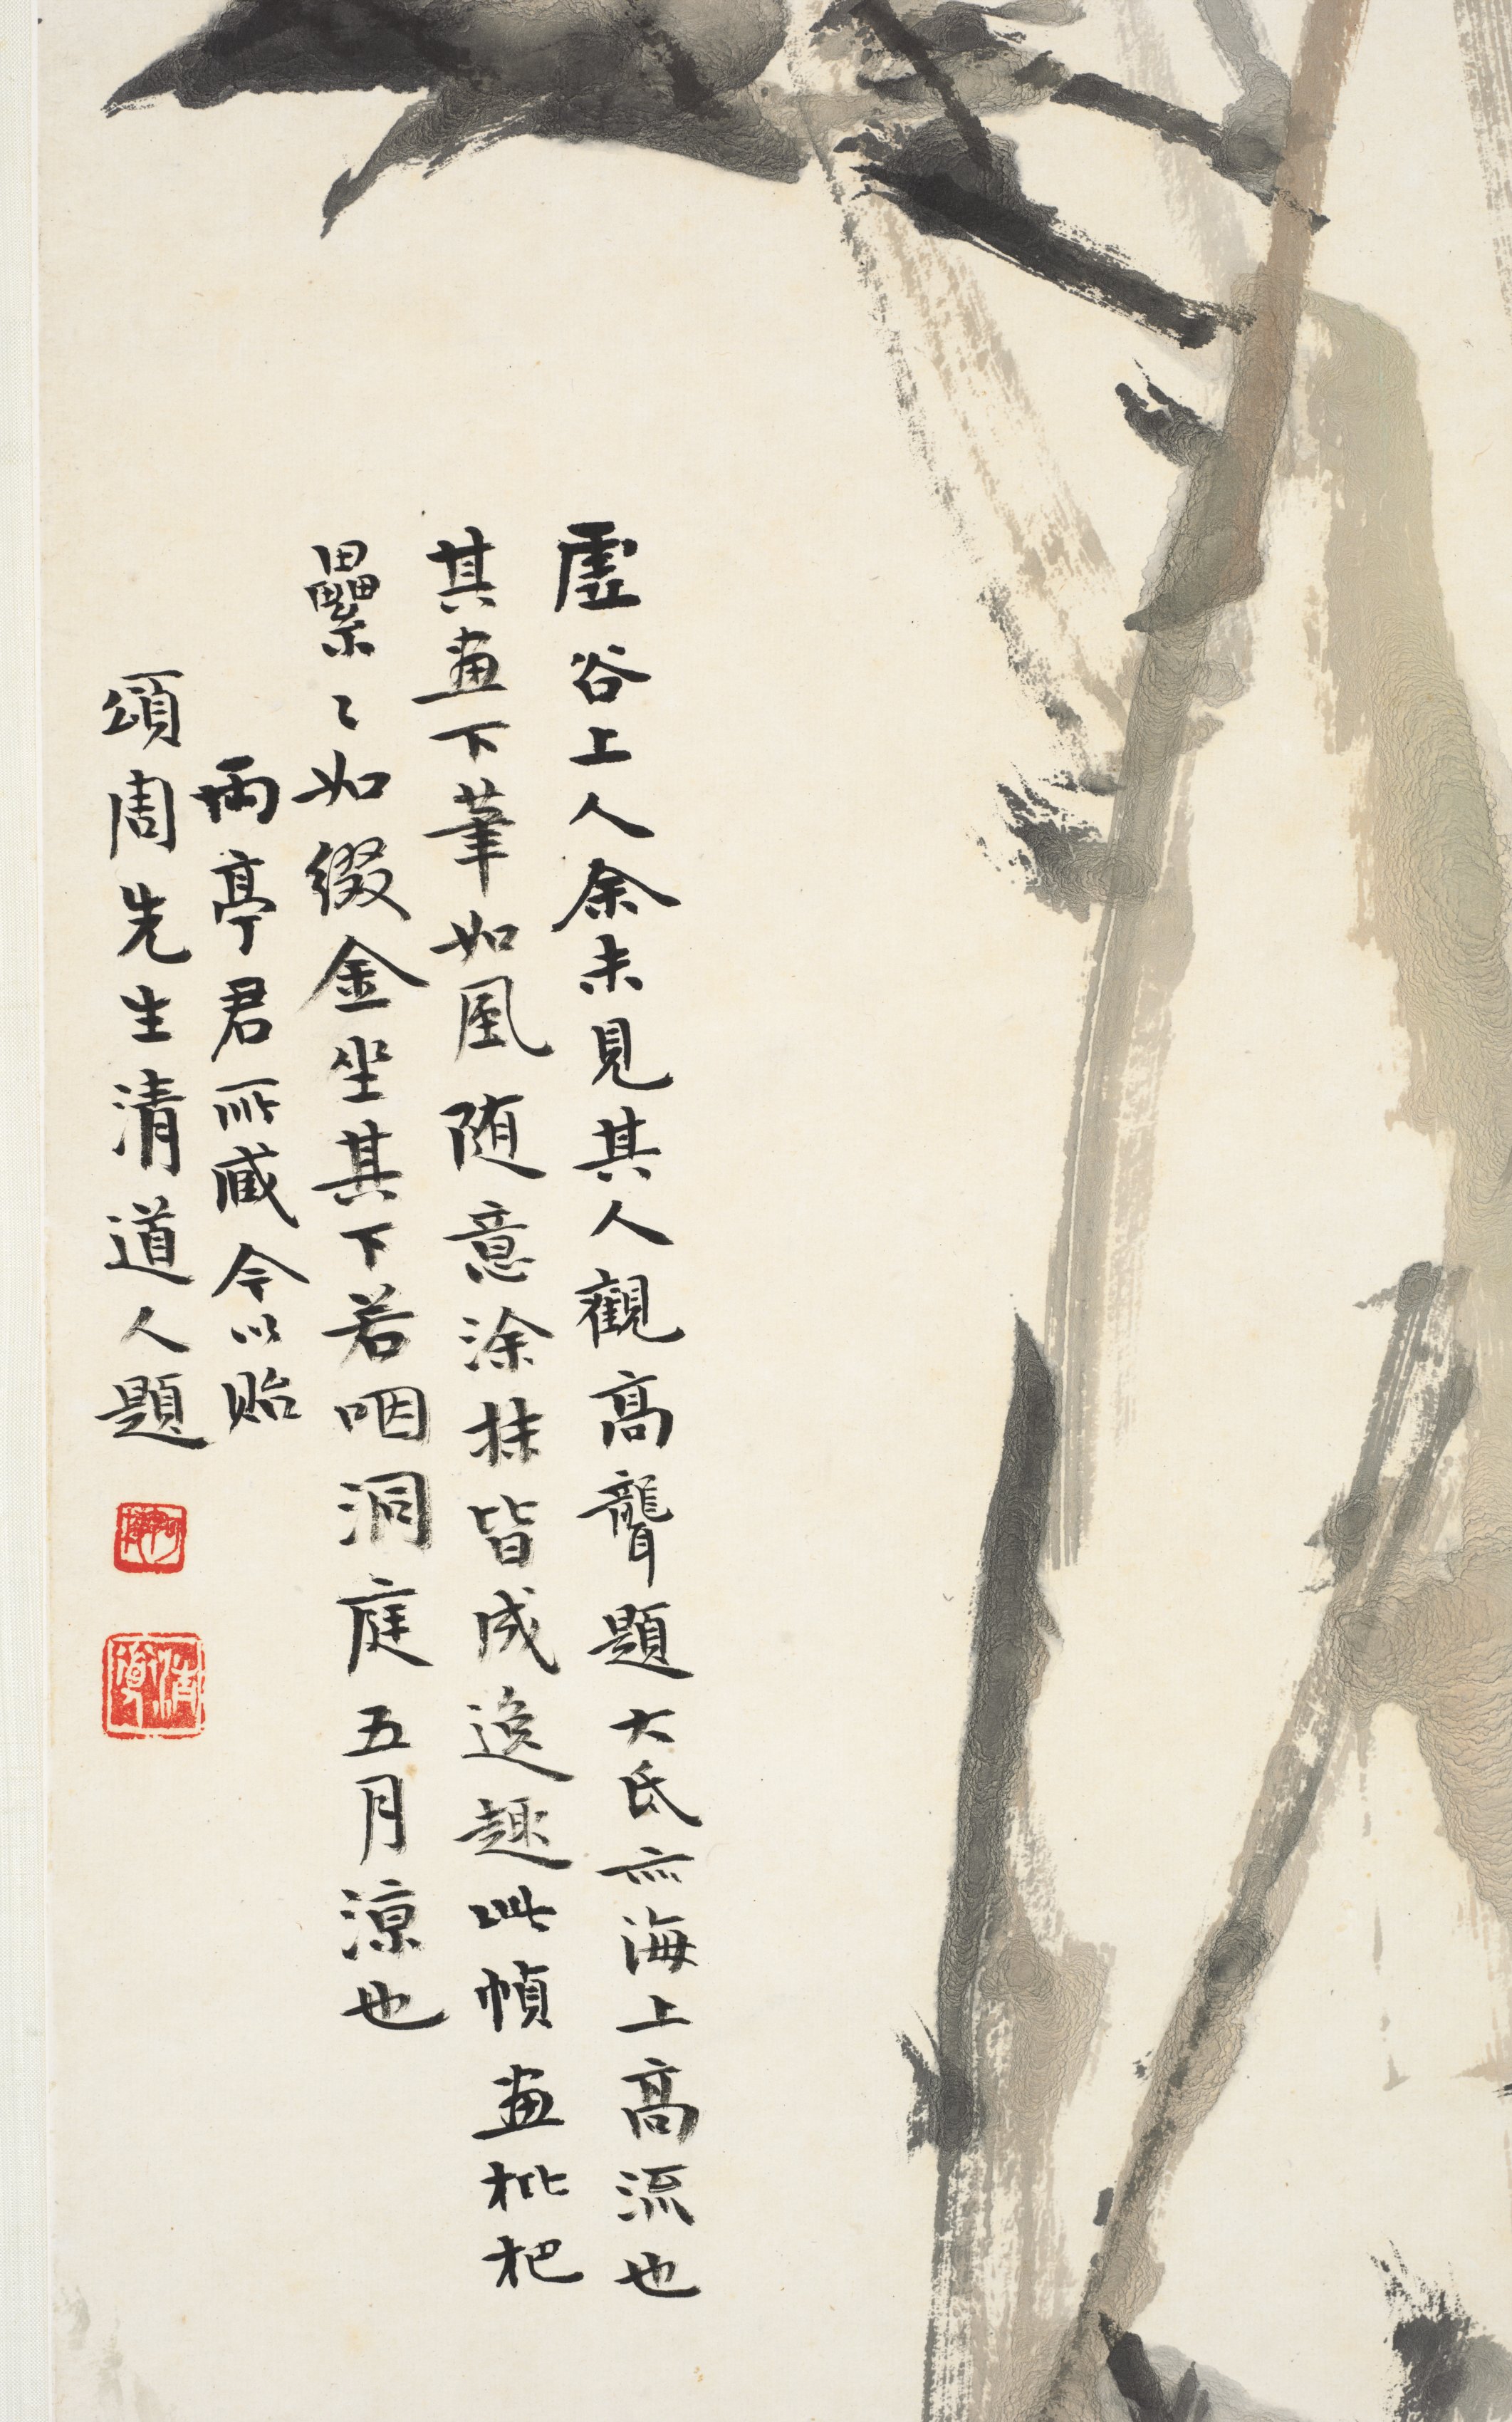 虛谷上人余未見其人觀高聾題大氐亦海上高流也
其畫下筆如風随意涂抹皆成逸趣此幀畫枇杷
纍〻如綴金坐其下若咽洞庭五月涼也
兩亭君所藏今以貽
頌周先生清道人題
阿梅
清道人